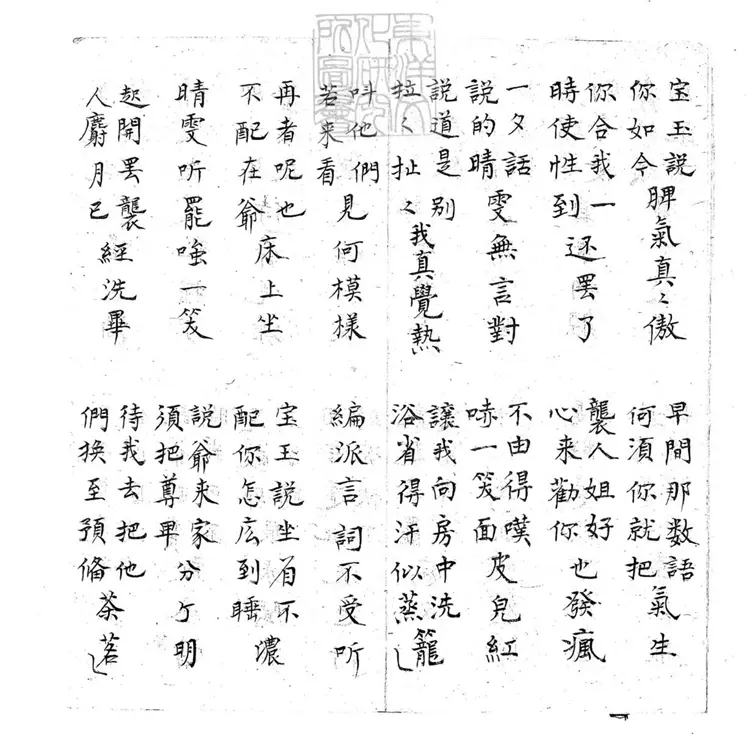 東洋文
化研究
所圖書
宝玉說你如今脾氣真〻傲
早間那数語何須你就把氣生
你合我一時使性到还罢了
襲人姐好心来勸你也發瘋
一夕話說的晴雯無言對
不由得嘆哧一笑面皮皃紅
說道是别拉〻扯〻我真覺熱
讓我向房中洗浴省得汗似蒸籠
叫他們若来看見何模樣
編派言詞不受听
再者呢也不配在爺床上坐
宝玉說坐着不配你怎庅到睡濃
晴雯听罷嗤一笑
說爺来家須把尊卑分个明
起開罢襲人麝月已經洗畢
待我去把他們换至預俻茶茗